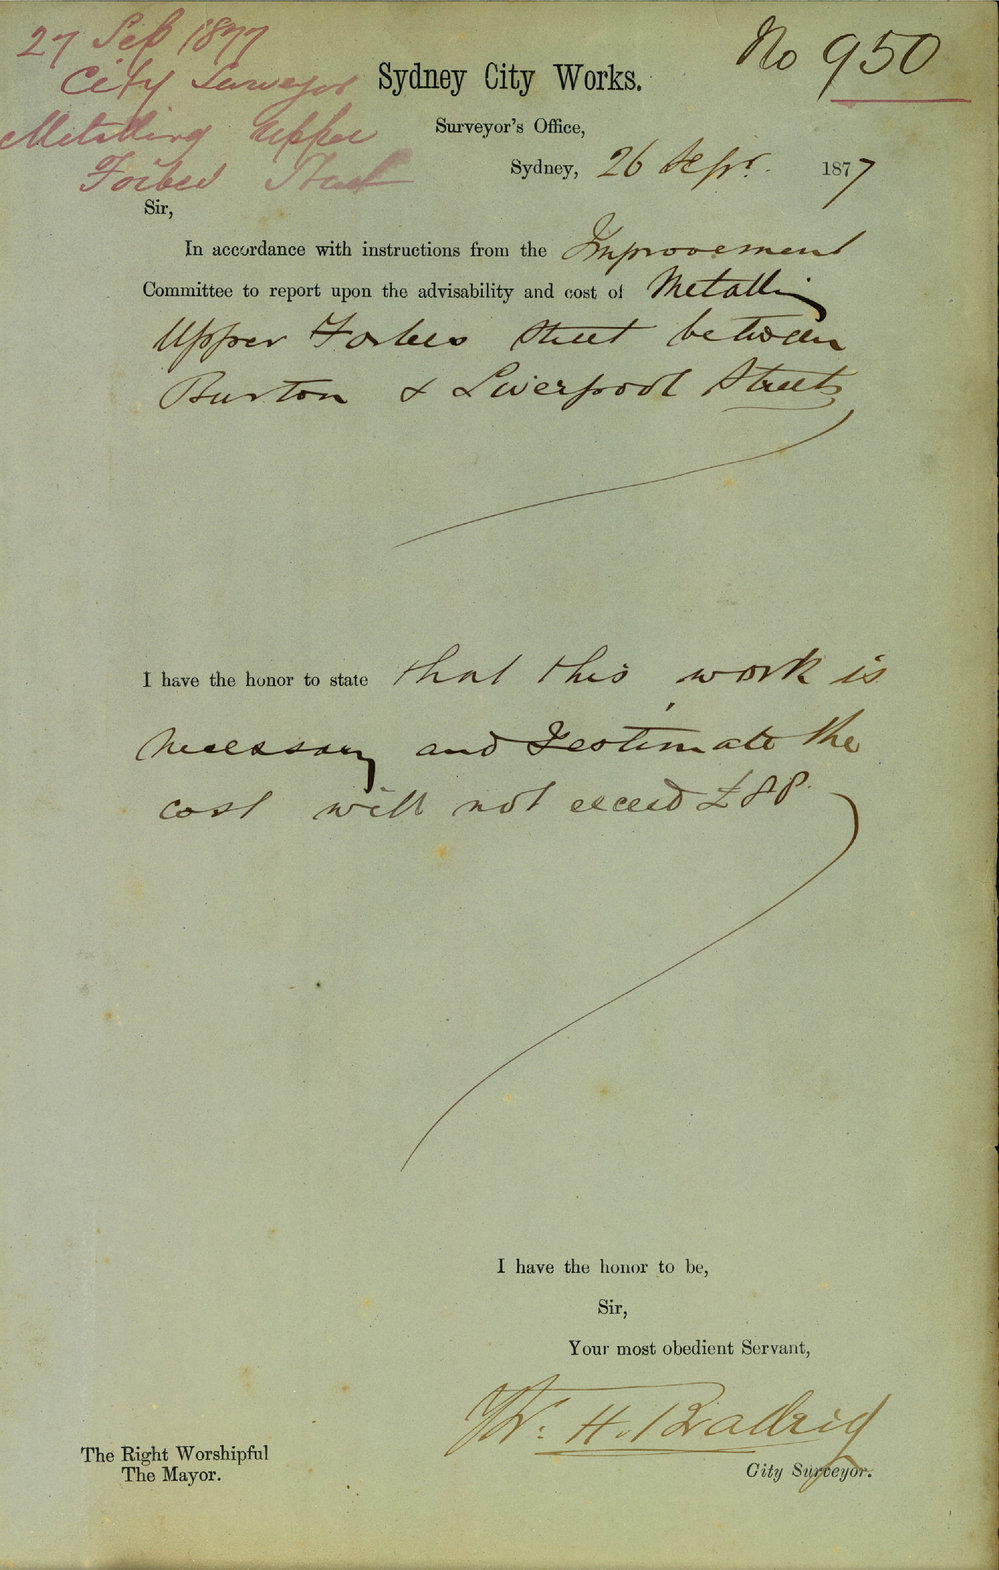 27 Sep 1877
City Surveyor
Metalling Upper
Forbes Street
No 950
Sydney City Works.
Surveyor's Office,
Sydney, 26 Sepr. 1877
Sir,
In accordance with instructions from the Improvement
Committee to report upon the advisability and cost of Metalling
Upper Forbes Street between
Burton & Liverpool Streets
I have the honor to state that this work is
necessary and I estimate the
cost will not exceed £88.
I have the honor to be,
Sir,
Your most obedient Servant,
H.
City Surveyor.
The Right Worshipful
The Mayor.